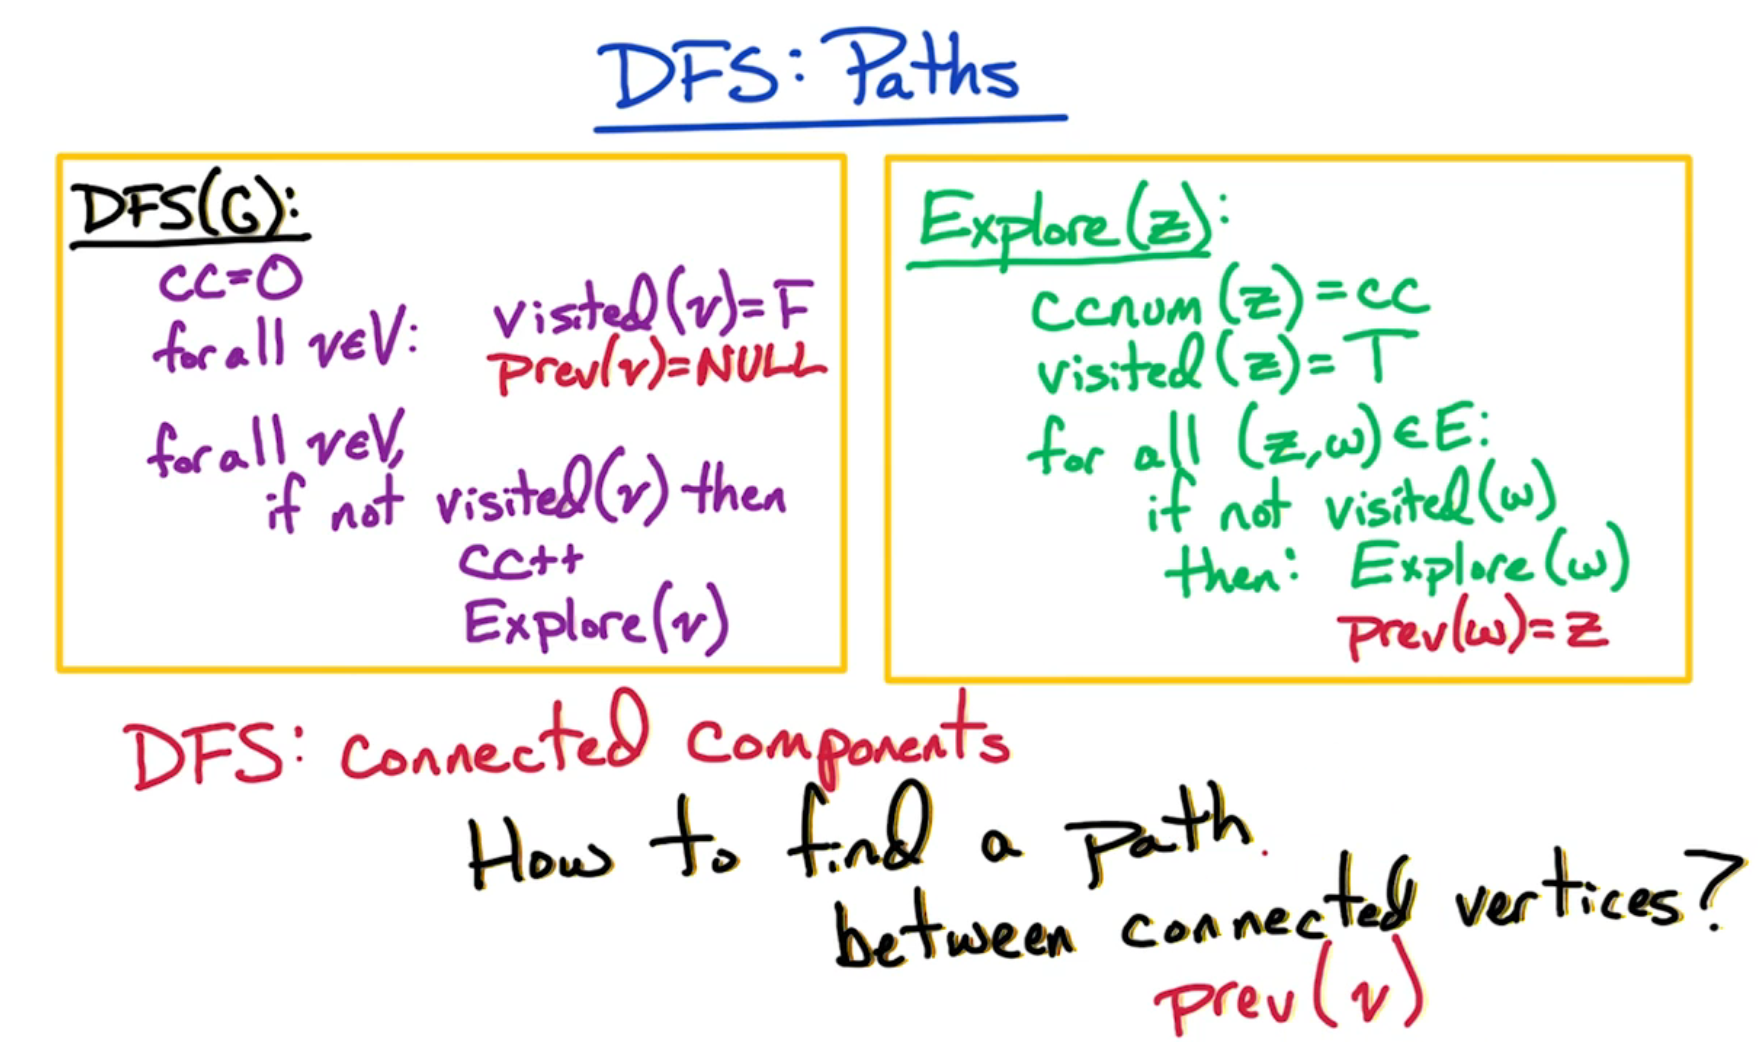 DFS: Paths
DFS(G):
cc=0
for all v∈V: visited(v)=F
prev(v)=NULL
for all v∈V,
if not visited(v) then
cc++
Explore(v)
Explore(z):
ccnum(z)=cc
visited(z)=T
for all (z,w)∈E:
if not visited(w)
then: Explore(w)
prev(w)=z
DFS: connected components
How to find a path
between connected vertices?
prev(v)